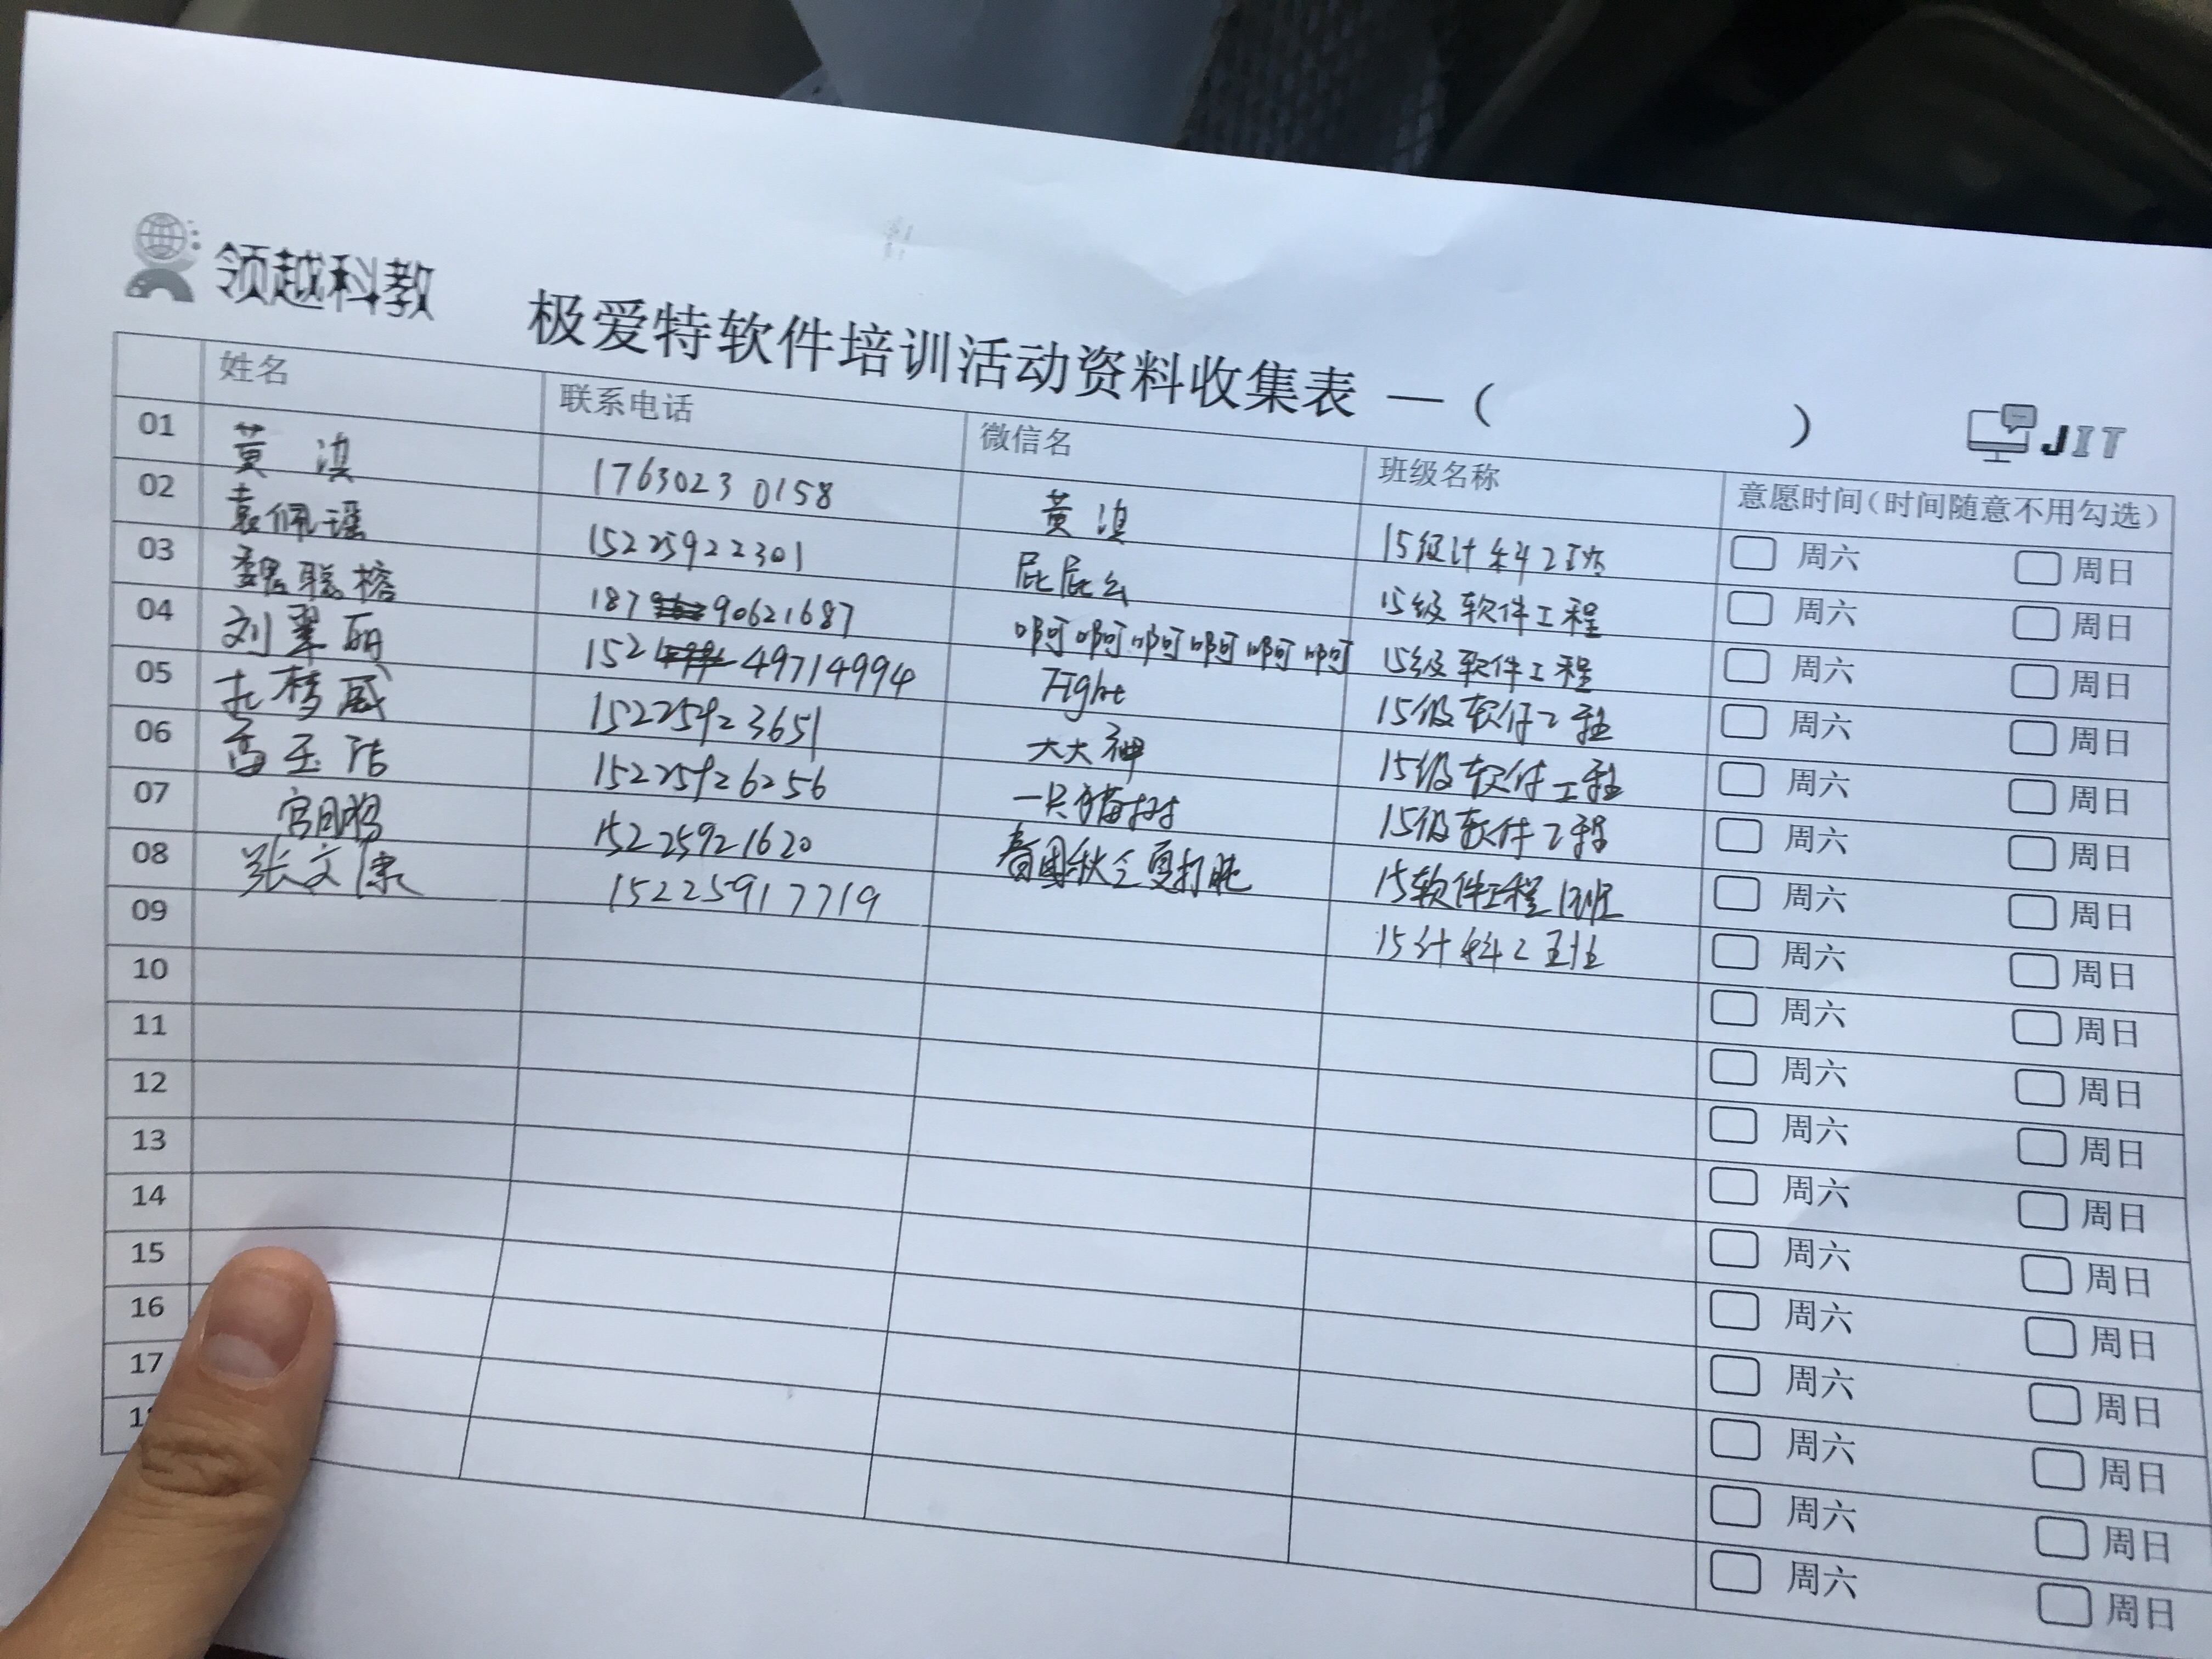 领越科教
极爱特软件培训活动资料收集表 — ( )
JIT
姓名 联系电话 微信名 班级名称 意愿时间(时间随意不用勾选)
01 黄滇 17630230158 黄滇 15级计科2班 周六 周日
02 袁佩瑶 15225922301 屁屁么 15级软件工程 周六 周日
03 魏聪榕 18790621687 啊啊啊啊啊啊 15级软件工程 周六 周日
04 刘翠丽 15249714994 Fight 15级软件工程 周六 周日
05 梦威 15225923651 大大神 15级软件工程 周六 周日
06 高玉洁 15225926256 一只猫树 15级软件工程 周六 周日
07 15225921620 春困秋乏夏打盹 15软件工程1班 周六 周日
08 张文康 15225917719 15计科2班 周六 周日
09 周六 周日
10 周六 周日
11 周六 周日
12 周六 周日
13 周六 周日
14 周六 周日
15 周六 周日
16 周六 周日
17 周六 周日
周六 周日